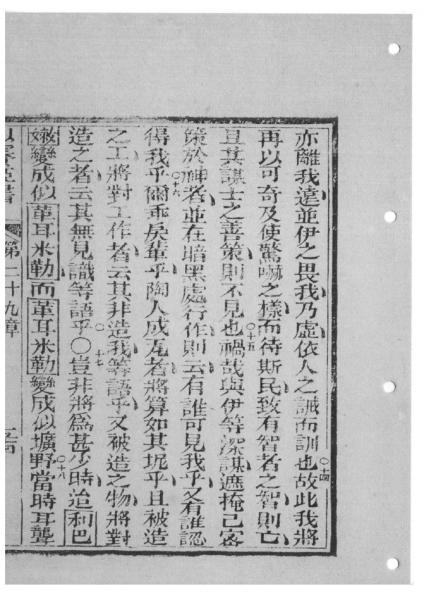 亦離我遠並伊之畏我乃虛依人之誡而訓也○十四故此我將
再以可奇及使驚嚇之樣而待斯民致有智者之智則亡
且其謀士之善策則不見也○十五禍哉與伊等深謀遮掩己密
策於神者並在暗黑處行作則云有誰可見我乎又有誰認
得我乎○十六爾乖戾輩乎陶人成瓦者將算如其坭乎且被造
之工將對工作者云其非造我等語乎又被造之物將對
造之者云其無見識等語乎○十七豈非將為甚少時治利巴
嫩變成似革耳米勒而革耳米勒變成似壙野○十八當時耳聾
以賽亞書 第二十九章